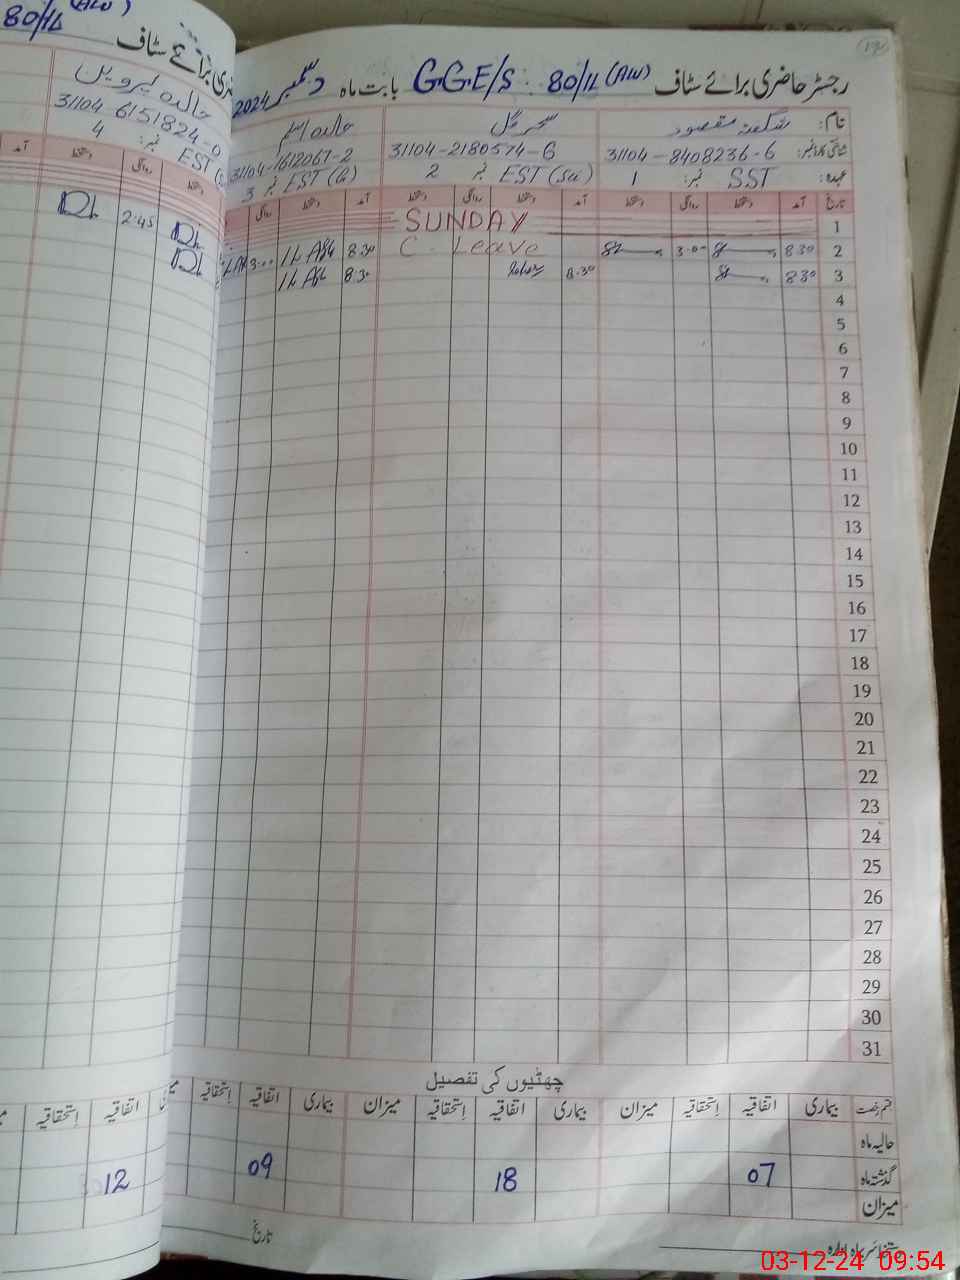 رجسٹر حاضری برائے سٹاف G.G.E/S 80/1L (AW) بابت ماہ دسمبر 2024
نام: شگفتہ مقصود سحر گل خالدہ اسلم
شناختی کارڈ نمبر: 31104-8408236-6 31104-2180574-6 31104-1612067-2
عہدہ: SST نمبر: 1 EST (Sci) نمبر 2 EST (G) نمبر 3
تاریخ آمد دستخط روانگی دستخط آمد دستخط روانگی دستخط آمد دستخط روانگی
1 SUNDAY
2 8 30 3.00 C. Leave 8.30 3.00
3 8 30 8.30 8.30
4
5
6
7
8
9
10
11
12
13
14
15
16
17
18
19
20
21
22
23
24
25
26
27
28
29
30
31
چھٹیوں کی تفصیل
قسم رخصت بیماری اتفاقیہ استحقاقیہ میزان بیماری اتفاقیہ استحقاقیہ میزان بیماری اتفاقیہ استحقاقیہ
حالیہ ماہ
گذشتہ ماہ 07 18 09
میزان
دستخط سربراہ ادارہ تاریخ
80/1L (AW)
برائے سٹاف
خالدہ پروین
31104 6151824-0
EST نمبر: 4
دستخط روانگی دستخط آمد
2.45
اتفاقیہ استحقاقیہ
12
03-12-24 09:54